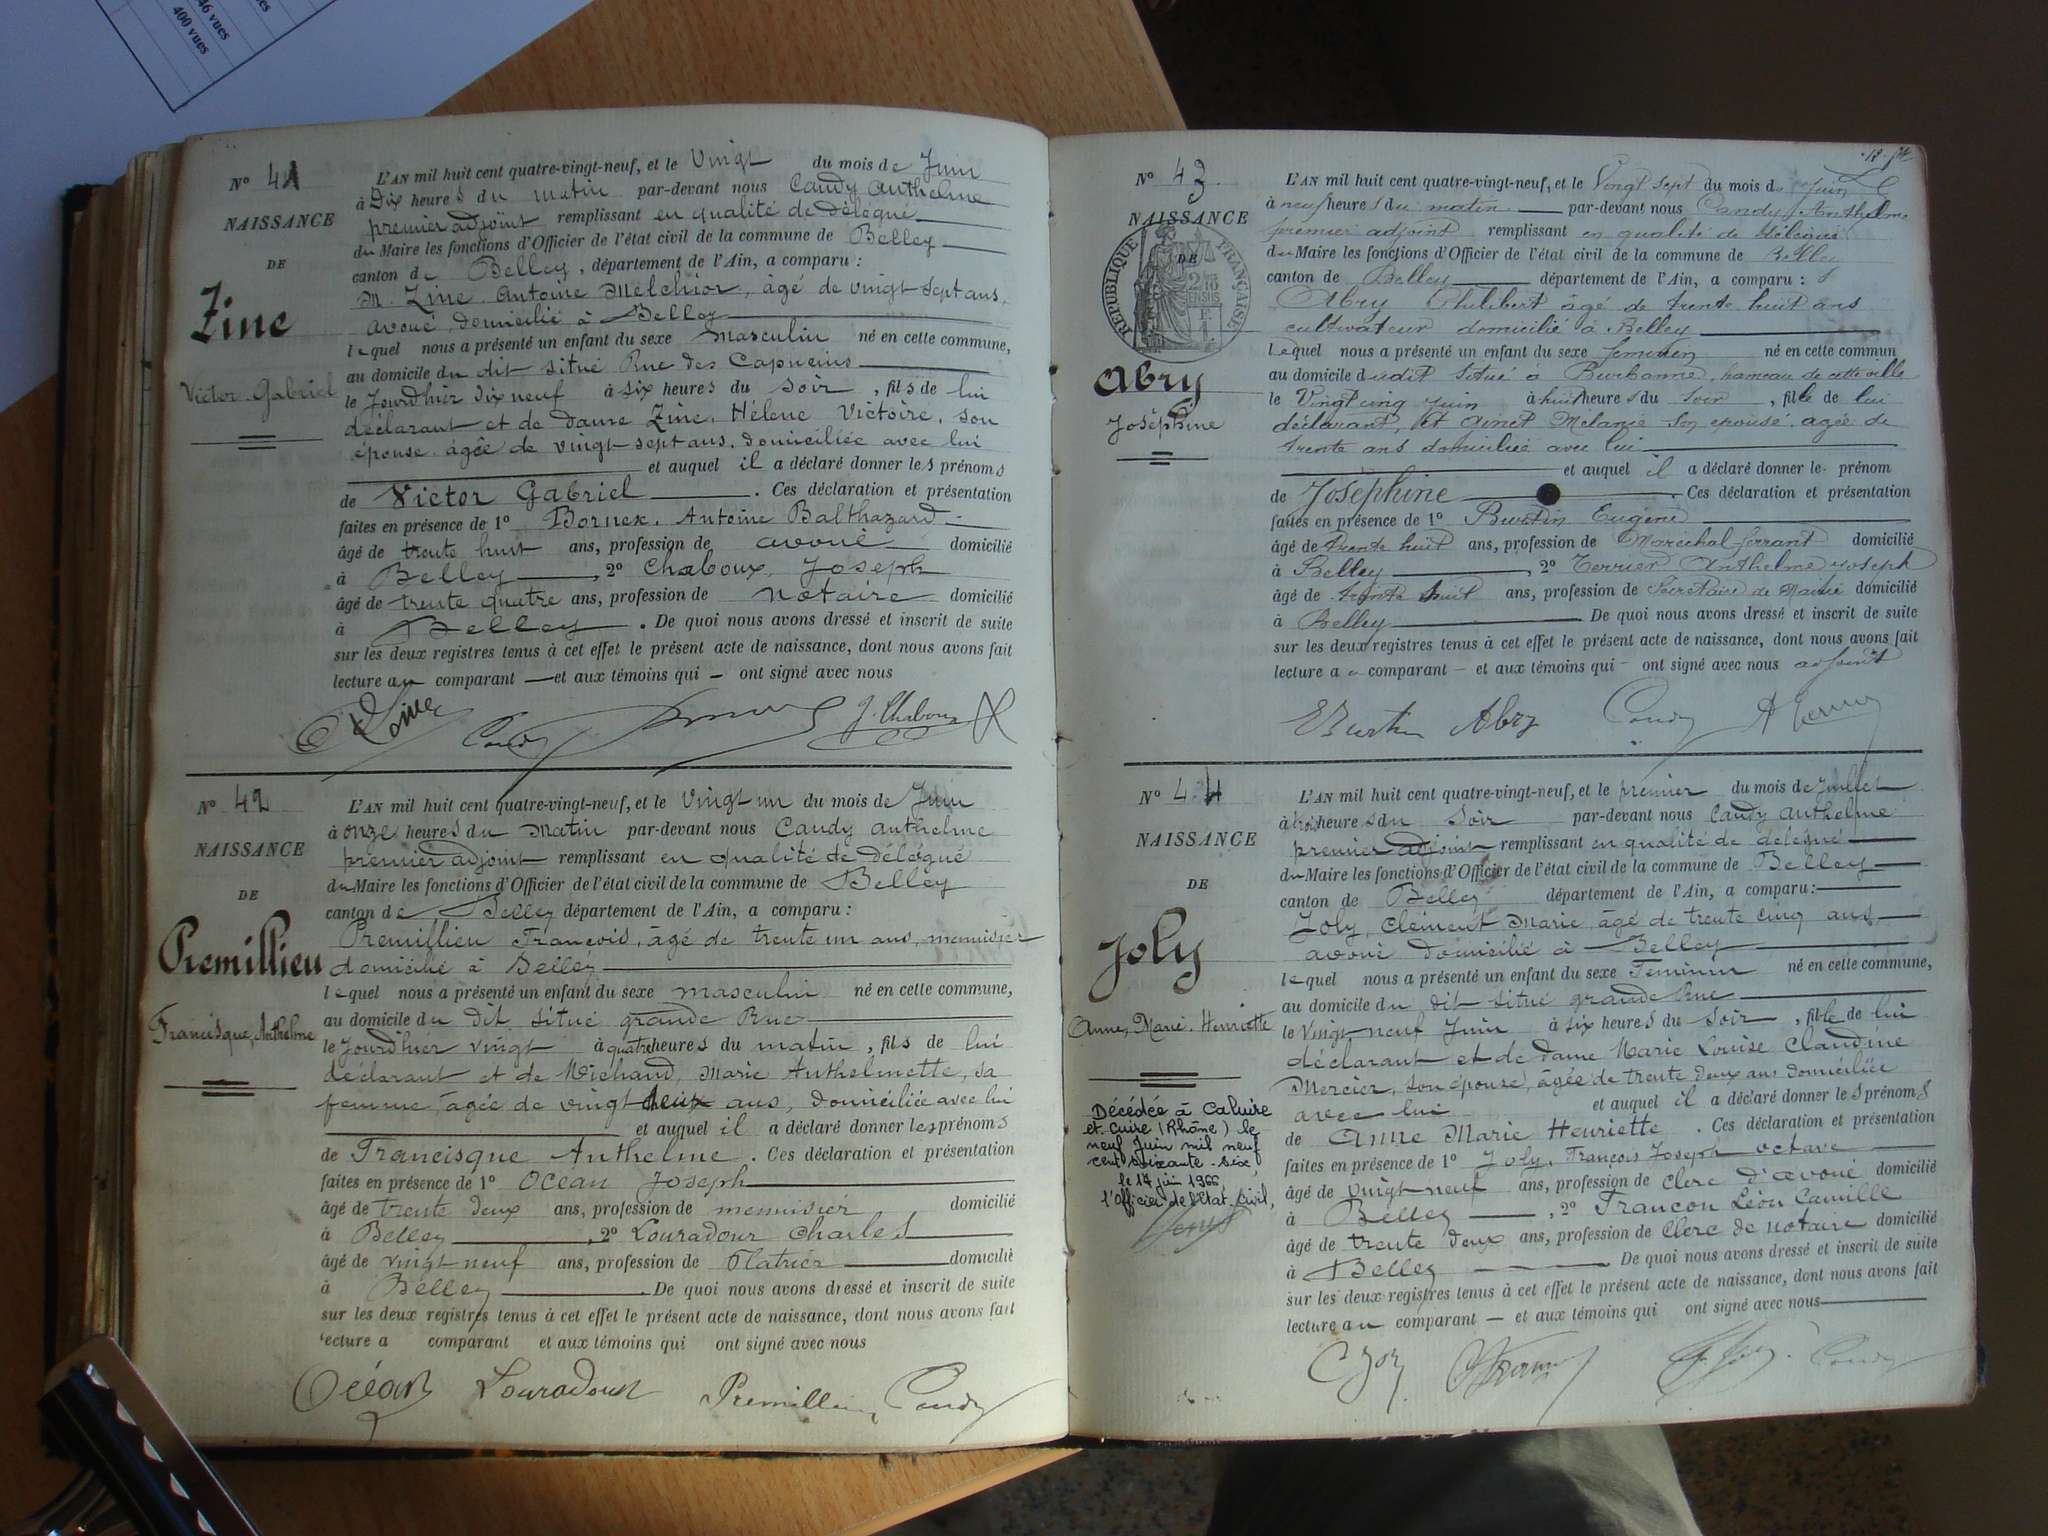 46 vues
400 vues
N° 41
NAISSANCE
DE
Zinc
Victor Gabriel
L'AN mil huit cent quatre-vingt-neuf, et le Vingt du mois de Juin
à Dix heures du matin par-devant nous Candy Anthelme
premier adjoint remplissant en qualité de délégué
du Maire les fonctions d'Officier de l'état civil de la commune de Belley
canton de Belley, département de l'Ain, a comparu :
M. Zinc Antoine Melchior, âgé de vingt sept ans,
avoué, domicilié à Belley
lequel nous a présenté un enfant du sexe masculin né en cette commune,
au domicile du dit situé Rue des Capucins
le Jourd'hier dix neuf à six heures du soir, fils de lui
déclarant et de dame Zinc, Hélène Victoire, son
épouse, âgée de vingt sept ans, domiciliée avec lui
et auquel il a déclaré donner les prénoms
de Victor Gabriel. Ces déclaration et présentation
faites en présence de 1° Bornex, Antoine Balthazard
âgé de trente huit ans, profession de avoué domicilié
à Belley, 2° Chaboux, Joseph
âgé de trente quatre ans, profession de notaire domicilié
à Belley. De quoi nous avons dressé et inscrit de suite
sur les deux registres tenus à cet effet le présent acte de naissance, dont nous avons fait
lecture au comparant et aux témoins qui ont signé avec nous
Candy J. Chaboux
N° 42
NAISSANCE
DE
Premillieu
Francisque, Anthelme
L'AN mil huit cent quatre-vingt-neuf, et le vingt un du mois de Juin
à onze heures du Matin par-devant nous Candy anthelme
premier adjoint remplissant en qualité de délégué
du Maire les fonctions d'Officier de l'état civil de la commune de Belley
canton de Belley département de l'Ain, a comparu :
Premillieu François, âgé de trente un ans, menuisier
domicilié à Belley
lequel nous a présenté un enfant du sexe masculin né en cette commune,
au domicile du dit situé grande Rue
le Jourd'hier vingt à quatre heures du matin, fils de lui
déclarant et de Michaud, Marie Anthelmette, sa
femme, âgée de vingt deux ans, domiciliée avec lui
et auquel il a déclaré donner les prénoms
de Francisque Anthelme. Ces déclaration et présentation
faites en présence de 1° Océan Joseph
âgé de trente deux ans, profession de menuisier domicilié
à Belley, 2° Louradour Charles
âgé de vingt neuf ans, profession de Platrier domicilié
à Belley. De quoi nous avons dressé et inscrit de suite
sur les deux registres tenus à cet effet le présent acte de naissance, dont nous avons fait
lecture a comparant et aux témoins qui ont signé avec nous
Océan Louradour Premillieu Candy
N° 43
NAISSANCE
DE
RÉPUBLIQUE FRANÇAISE
Abry
Joséphine
L'AN mil huit cent quatre-vingt-neuf, et le Vingt sept du mois de Juin
à neuf heures du matin par-devant nous Candy Anthelme
premier adjoint remplissant en qualité de délégué
du Maire les fonctions d'Officier de l'état civil de la commune de Belley
canton de Belley département de l'Ain, a comparu :
Abry Philibert âgé de trente huit ans
cultivateur domicilié à Belley
lequel nous a présenté un enfant du sexe féminin né en cette commun
au domicile dudit situé à hameau de cette ville
le Vingt cinq juin à huit heures du soir, fille de lui
déclarant, et Ginet Mélanie son épouse, agée de
trente ans domiciliée avec lui
et auquel il a déclaré donner le prénom
de Joséphine. Ces déclaration et présentation
faites en présence de 1° Burtin Eugène
âgé de trente huit ans, profession de Maréchal ferrant domicilié
à Belley, 2° Terrier Anthelme Joseph
âgé de trente huit ans, profession de Secrétaire de Mairie domicilié
à Belley De quoi nous avons dressé et inscrit de suite
sur les deux registres tenus à cet effet le présent acte de naissance, dont nous avons fait
lecture a comparant et aux témoins qui ont signé avec nous adjoint
E Burtin Abry Candy
N° 44
NAISSANCE
DE
Joly
Anne, Marie, Henriette
Décédée à Caluire
et Cuire (Rhône) le
neuf Juin mil neuf
cent soixante-six
le 14 juin 1966
l'Officier de l'Etat Civil,
L'AN mil huit cent quatre-vingt-neuf, et le premier du mois de Juillet
à trois heures du Soir par-devant nous Candy Anthelme
premier adjoint remplissant en qualité de délégué
du Maire les fonctions d'Officier de l'état civil de la commune de Belley
canton de Belley département de l'Ain, a comparu :
Joly, Clément Marie âgé de trente cinq ans
avoué domicilié à Belley
lequel nous a présenté un enfant du sexe Féminin né en cette commune,
au domicile du dit situé grande Rue
le Vingt neuf Juin à six heures du soir, fille de lui
déclarant et de Dame Marie Louise Claudine
Mercier, son épouse, âgée de trente deux ans domiciliée
avec lui et auquel il a déclaré donner les prénoms
de Anne Marie Henriette. Ces déclaration et présentation
faites en présence de 1° Joly, François Joseph octave
âgé de vingt neuf ans, profession de Clerc d'avoué domicilié
à Belley, 2° Francon Léon Camille
âgé de trente deux ans, profession de Clerc de notaire domicilié
à Belley. De quoi nous avons dressé et inscrit de suite
sur les deux registres tenus à cet effet le présent acte de naissance, dont nous avons fait
lecture au comparant et aux témoins qui ont signé avec nous
C Joly Candy